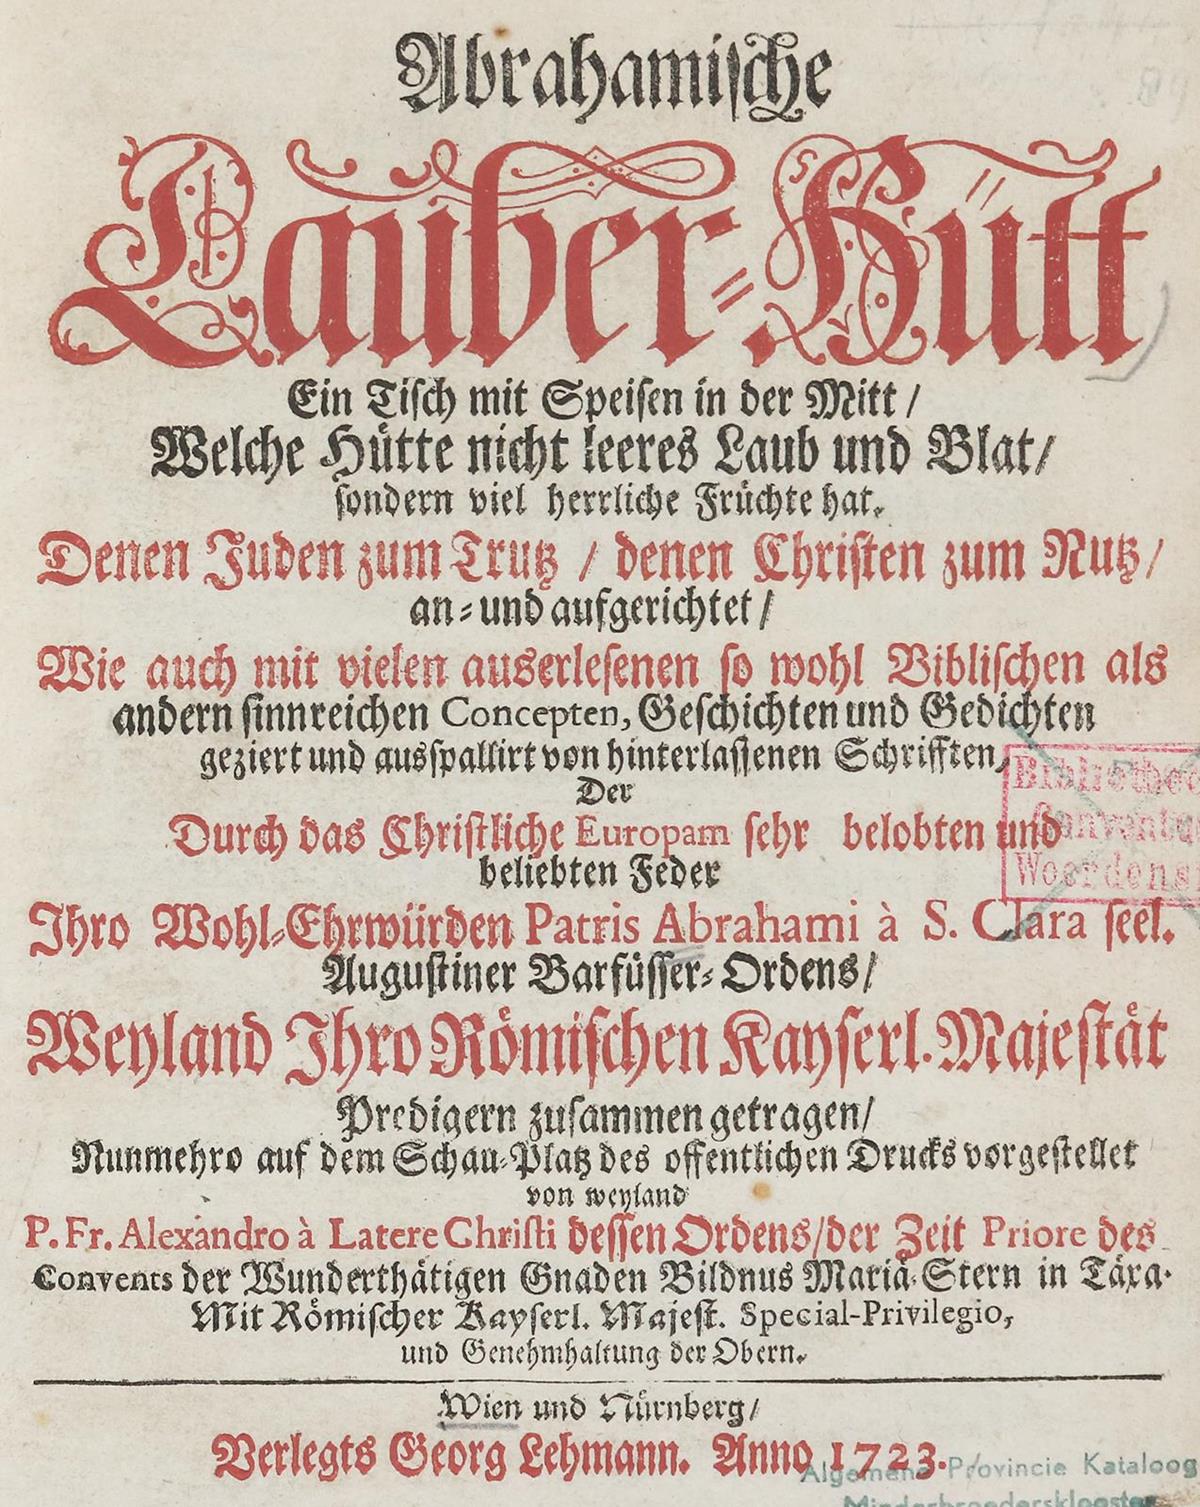 Abrahamische
Lauber-Hütt
Ein Tisch mit Speisen in der Mitt /
Welche Hütte nicht leeres Laub und Blat /
sondern viel herrliche Früchte hat.
Denen Juden zum Trutz / denen Christen zum Nutz /
an- und aufgerichtet /
Wie auch mit vielen auserlesenen so wohl Biblischen als
andern sinnreichen Concepten, Geschichten und Gedichten
geziert und ausspallirt von hinterlassenen Schrifften,
Der
Durch das Christliche Europam sehr belobten und
beliebten Feder
Ihro Wohl-Ehrwürden Patris Abrahami à S. Clara seel.
Augustiner Barfüsser-Ordens /
Weyland Ihro Römischen Kayserl. Majestät
Predigern zusammen getragen /
Nunmehro auf dem Schau-Platz des offentlichen Drucks vorgestellet
von weyland
P. Fr. Alexandro à Latere Christi dessen Ordens / der Zeit Priore des
Convents der Wunderthätigen Gnaden Bildnus Mariä-Stern in Täxa.
Mit Römischer Kayserl. Majest. Special-Privilegio,
und Genehmhaltung der Obern.
Wien und Nürnberg /
Verlegts Georg Lehmann. Anno 1723.
Bibliothec
Conventu
Woerdens
Algemene Provincie Kataloog
Minderbroedersklooster